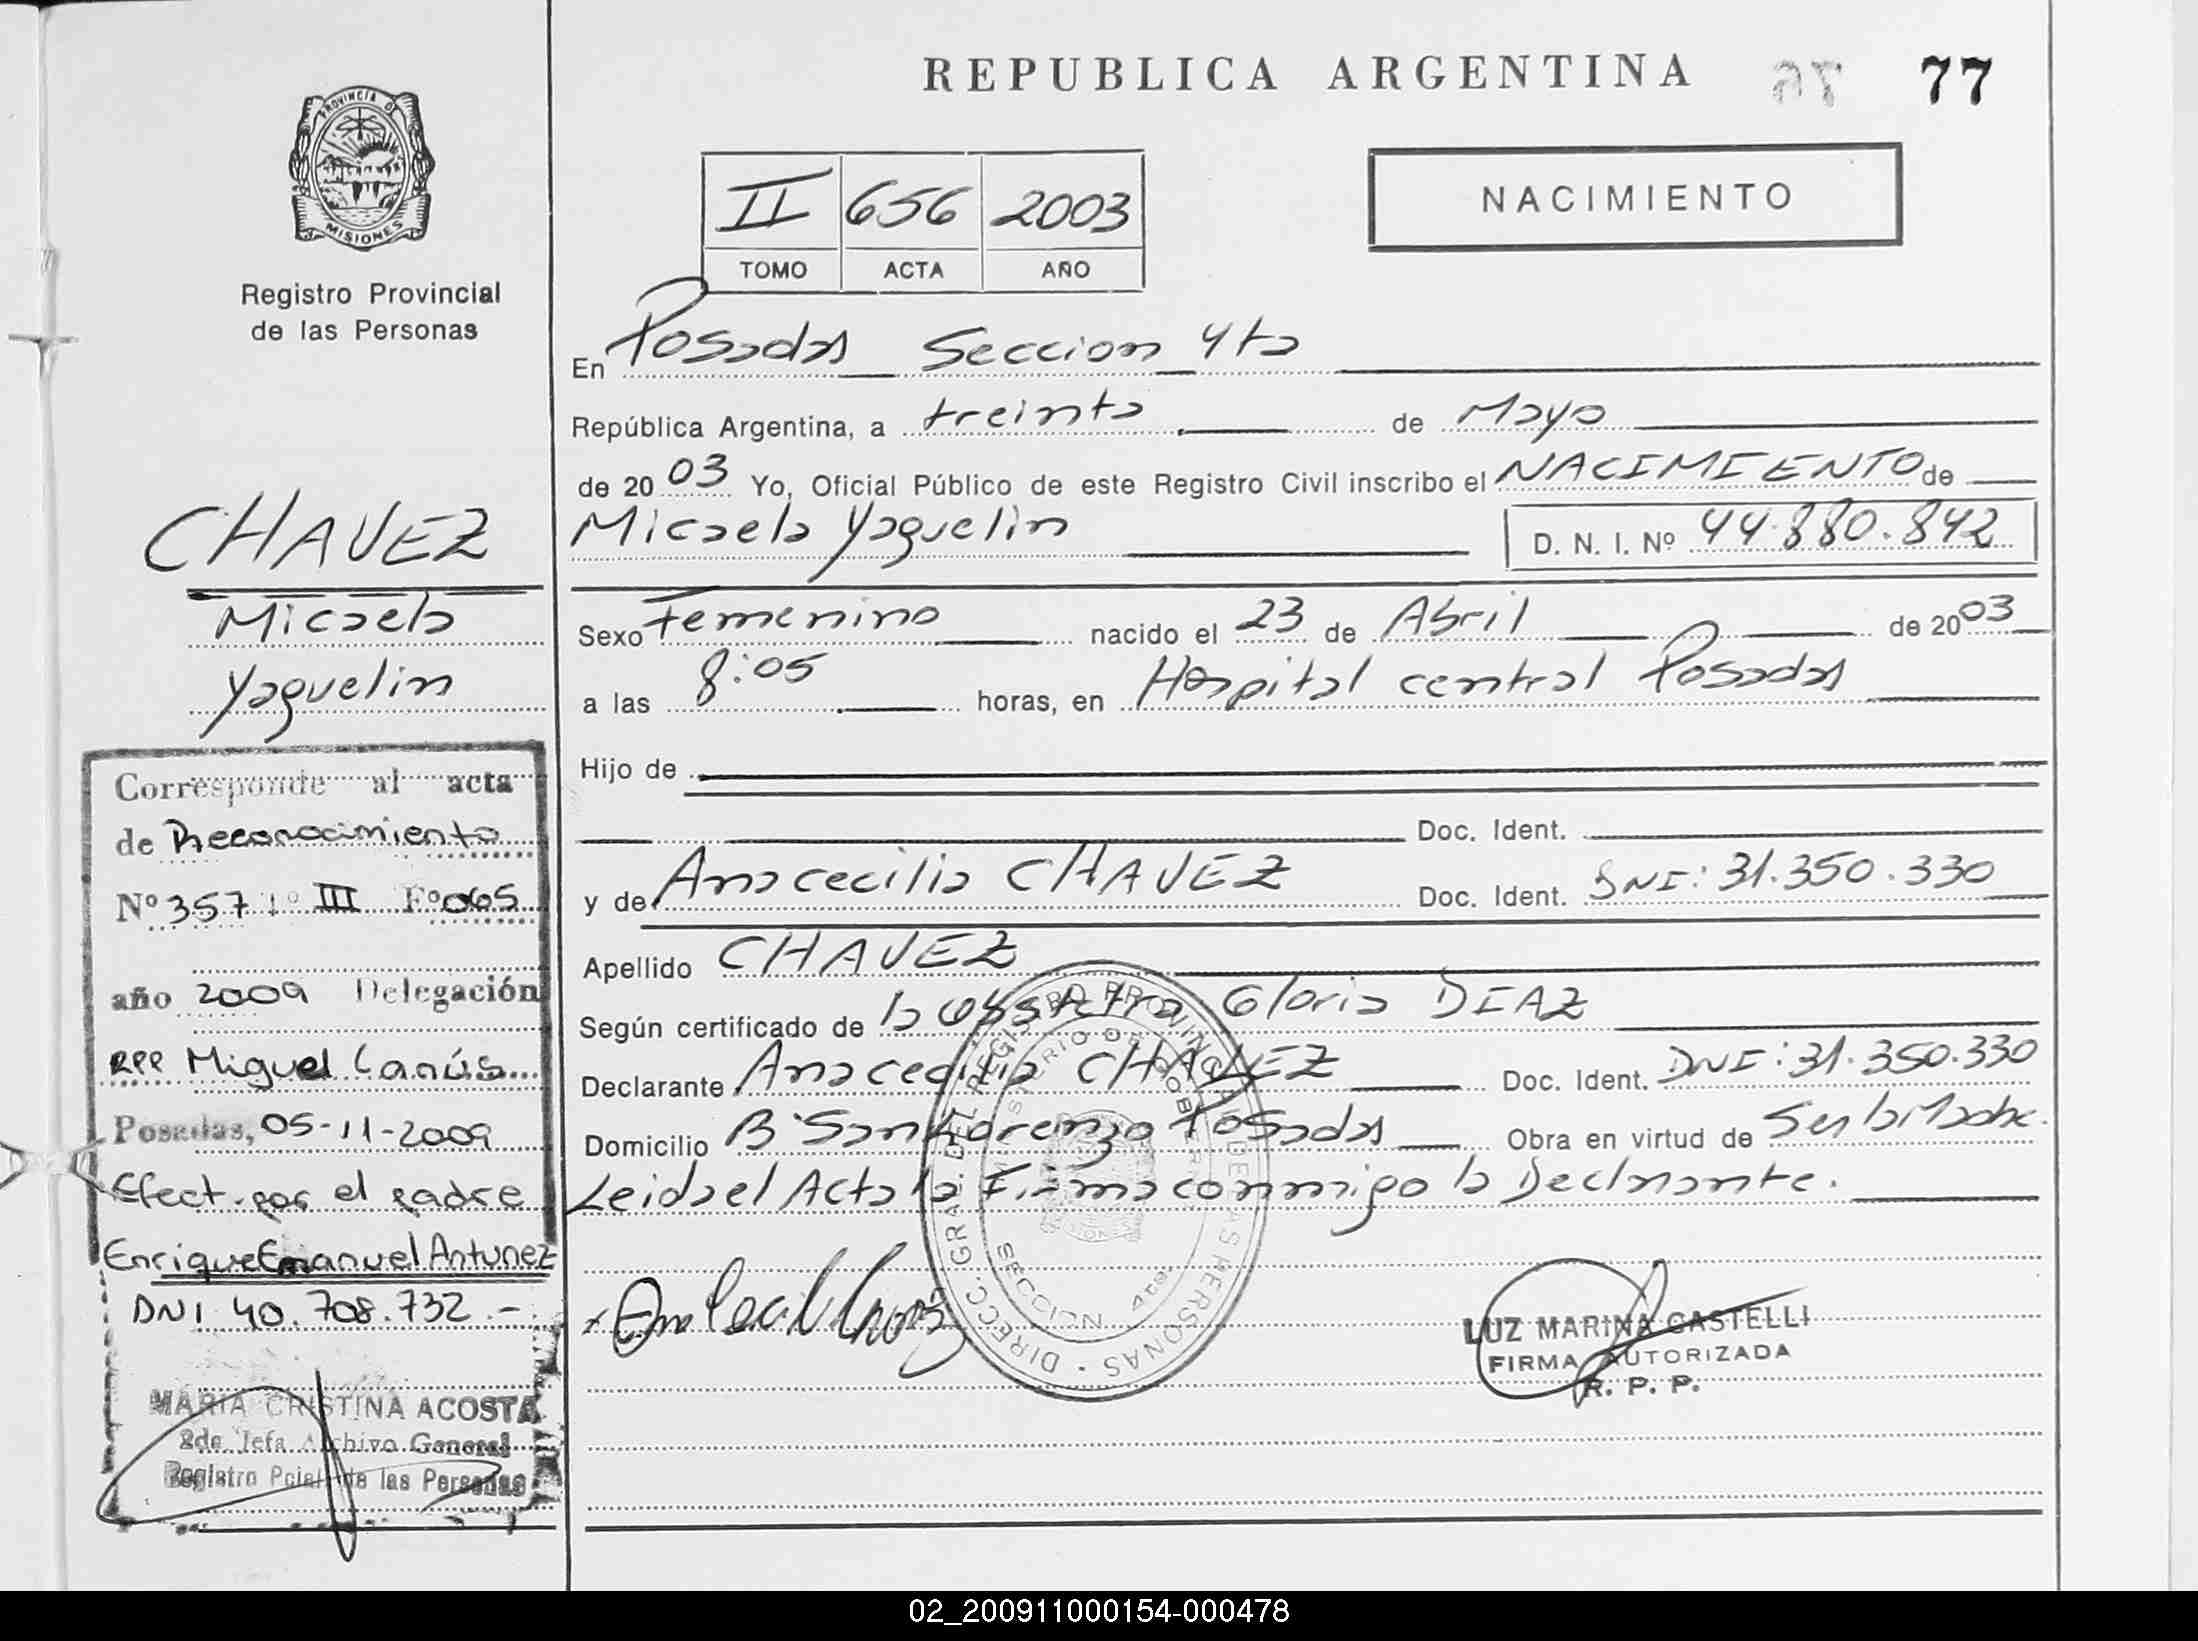 REPUBLICA ARGENTINA 76 77
PROVINCIA DE
MISIONES
Registro Provincial
de las Personas
CHAVEZ
Micaela
Yaquelin
Corresponde al acta
de Reconocimiento
Nº 357 Tº III Fº 065
año 2009 Delegación
RPP Miguel Lanús
Posadas, 05-11-2009
Efect. por el padre
Enrique Emanuel Antunez
DNI 40.708.732.-
MARIA CRISTINA ACOSTA
2da. Jefa Archivo General
Registro Pcial. de las Personas
NACIMIENTO
II 656 2003
TOMO ACTA AÑO
En Posadas Seccion 4ta
República Argentina, a treinta de Mayo
de 2003 Yo, Oficial Público de este Registro Civil inscribo el NACIMIENTO de
Micaela Yaquelin D. N. I. Nº 44.880.842
Sexo Femenino nacido el 23 de Abril de 2003
a las 8:05 horas, en Hospital central Posadas
Hijo de
Doc. Ident.
y de Ana cecilia CHAVEZ Doc. Ident. DNI: 31.350.330
Apellido CHAVEZ
Según certificado de la Obstetra Gloria DIAZ
Declarante Ana cecilia CHAVEZ Doc. Ident. DNI: 31.350.330
Domicilio Bº San Lorenzo Posadas Obra en virtud de Ser la Madre.
Leida el Acta la Firma conmigo la Declarante.
DIRECC. GRAL. DEL REGISTRO PROVINCIAL DE LAS PERSONAS
MINISTERIO DE GOBIERNO
SECCION 4ta.
LUZ MARINA CASTELLI
FIRMA AUTORIZADA
R. P. P.
02_200911000154-000478